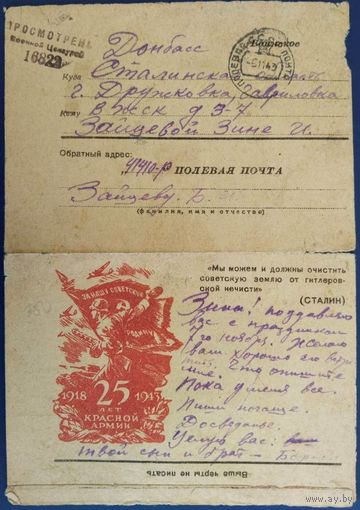 ПРОСМОТРЕНО
Военной Цензурой
16822
Воинское
Донбасс
Куда Сталинская область
г. Дружковка, Гавриловка
Кому
Зайцевой Зине И.
Обратный адрес:
41410-Р ПОЛЕВАЯ ПОЧТА
Зайцеву Б.
(фамилия, имя и отчество)
«Мы можем и должны очистить
советскую землю от гитлеров-
ской нечисти»
(СТАЛИН)
ЗА НАШУ СОВЕТСКУЮ
РОДИНУ!
1918 25 1943
ЛЕТ
КРАСНОЙ
АРМИИ
Зина! поздравляю
вас с праздником
7го ноября. Желаю
вам хорошо его
Что опишите
Пока у меня все.
Пиши почаще.
Досведанье.
Целую вас:
твой сын и брат – Борис
Выше черты не писать
www.ay.by